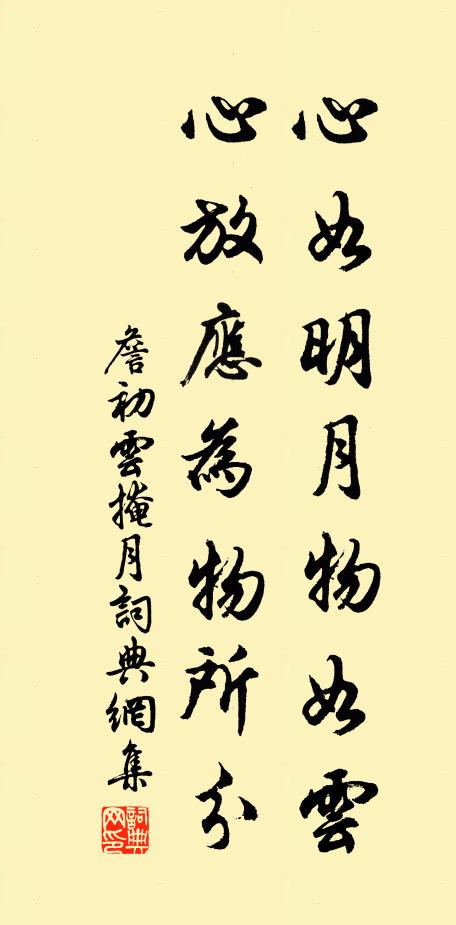 心如明月物如雲
心放應為物所分
詹初雲掩月詞典網集
詞典網印